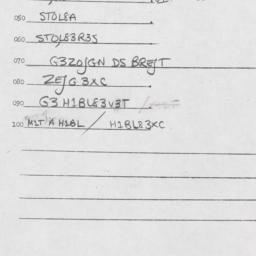 050 STOL8A
060 STOL83R3S
070 G3ZOJGN DS BREJT
080 ZEJG3XC
090 G3 H1BL83V3T /
100 M1T A H1BL / H1BL83XC